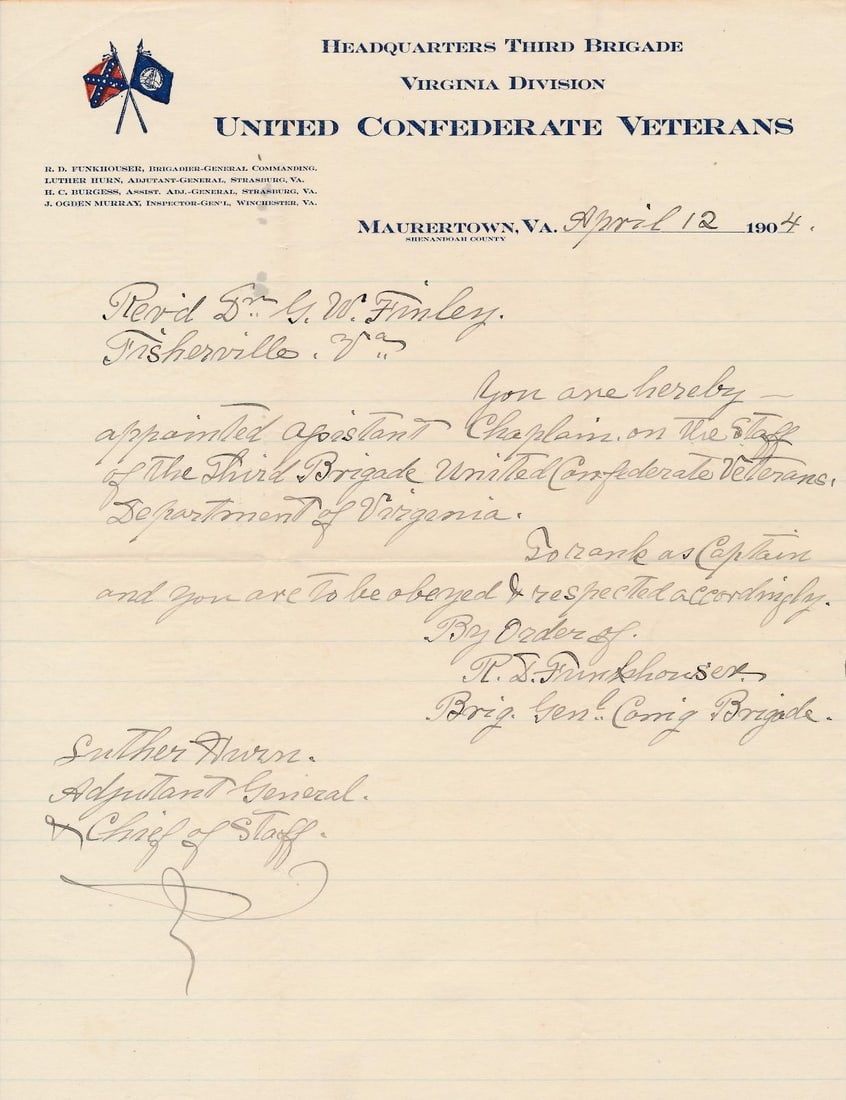 HEADQUARTERS THIRD BRIGADE
VIRGINIA DIVISION
UNITED CONFEDERATE VETERANS
R. D. FUNKHOUSER, BRIGADIER-GENERAL COMMANDING.
LUTHER HURN, ADJUTANT-GENERAL, STRASBURG, VA.
H. C. BURGESS, ASSIST. ADJ.-GENERAL, STRASBURG, VA.
J. OGDEN MURRAY, INSPECTOR-GEN'L, WINCHESTER, VA.
MAURERTOWN, VA. April 12 1904.
SHENANDOAH COUNTY
Rev'd Dr. G. W. Finley.
Fisherville. Va
You are hereby —
appointed assistant Chaplain, on the Staff
of the Third Brigade United Confederate Veterans.
Department of Virginia.
To rank as Captain
and you are to be obeyed & respected accordingly.
By Order of.
R. D. Funkhouser.
Brig. Genl. Comg Brigade.
Luther Hurn.
Adjutant General.
& Chief of Staff.